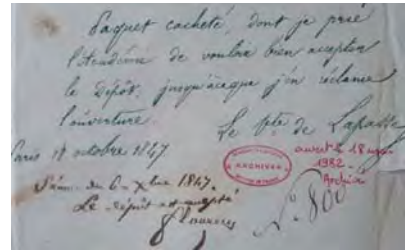 Paquet cacheté, dont je prie
l'Académie de vouloir bien accepter
le dépôt, jusqu'àceque j'en réclame
l'ouverture.
Le Vte de Lapasse
Paris 17 octobre 1847
ARCHIVES
ouvert le 18
1982
Séance du 6 Xbre 1847.
Le dépôt est accepté
Flourens
N° 800